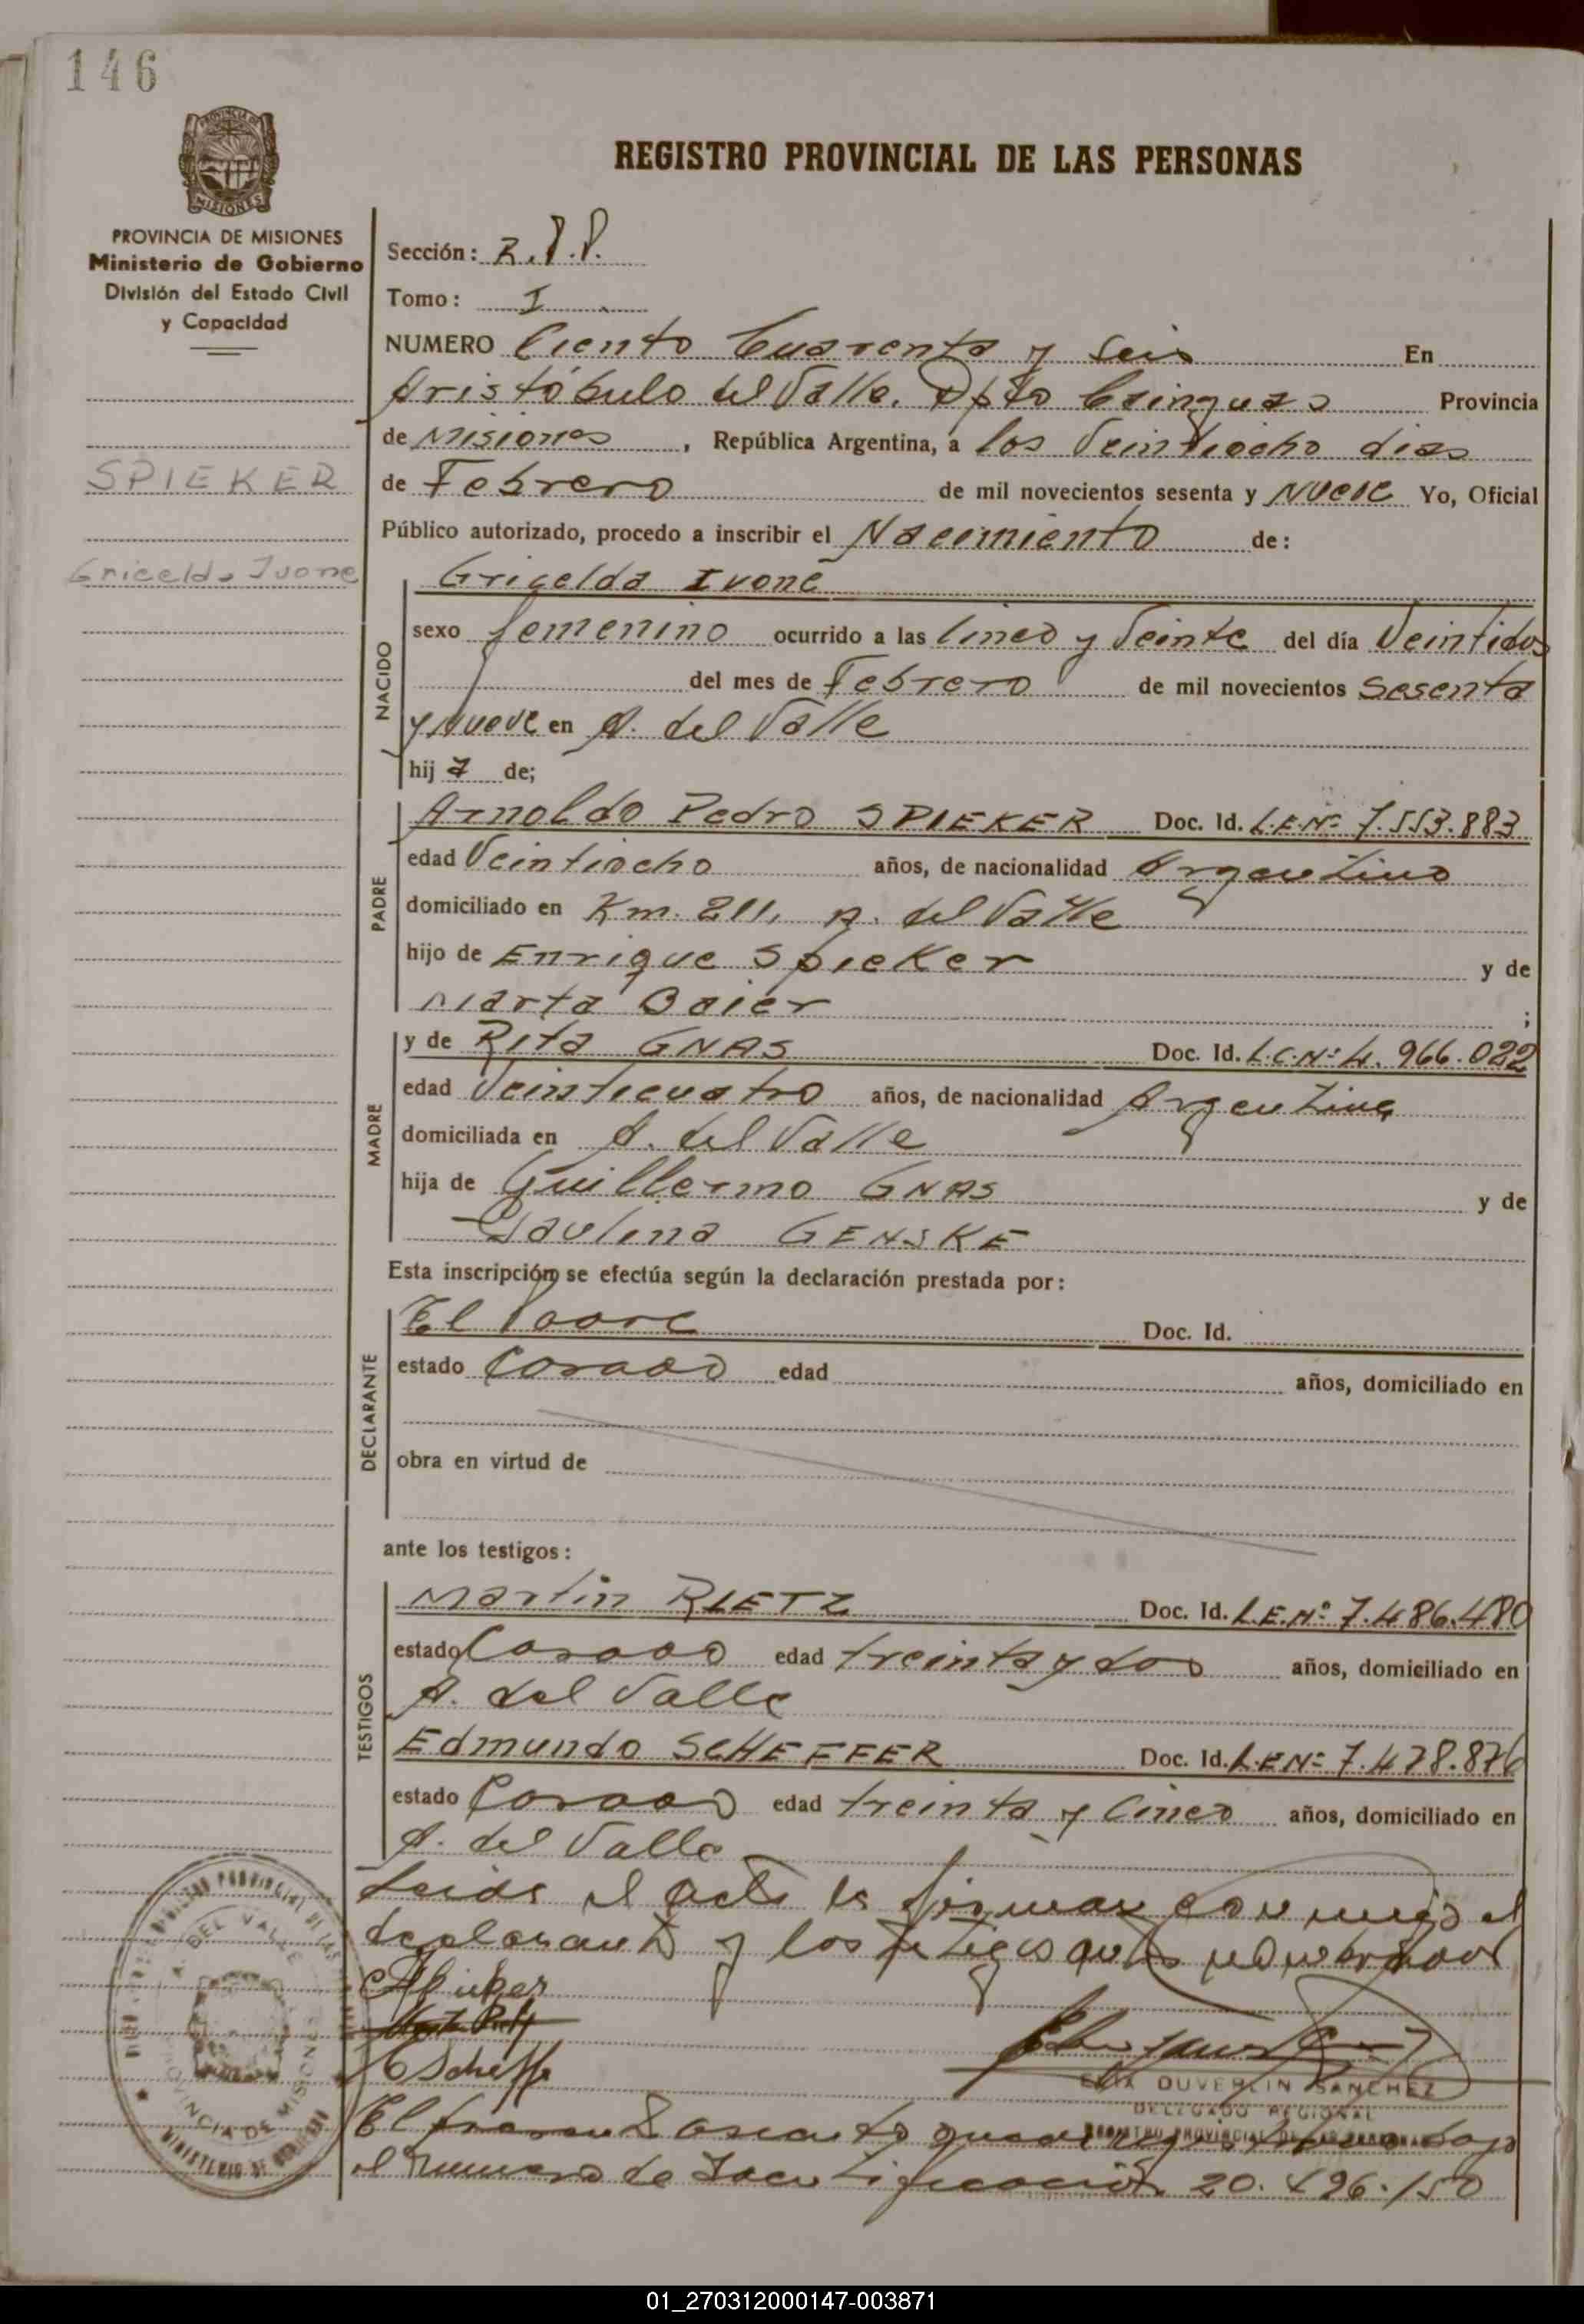 146
PROVINCIA DE MISIONES
PROVINCIA DE MISIONES
Ministerio de Gobierno
División del Estado Civil
y Capacidad
SPIEKER
Gricelda Ivone
REGISTRO PROVINCIAL DE LAS PERSONAS
Sección: R.P.P.
Tomo: I
NUMERO Ciento Cuarenta y Seis En
Aristóbulo del Valle. Dpto Cainguas Provincia
de Misiones, República Argentina, a los Veintiocho dias
de Febrero de mil novecientos sesenta y Nueve Yo, Oficial
Público autorizado, procedo a inscribir el Nacimiento de:
NACIDO
Gricelda Ivone
sexo femenino ocurrido a las Cinco y Veinte del día Veintidos
del mes de Febrero de mil novecientos Sesenta
y Nueve en A. del Valle
hij a de;
PADRE
Arnoldo Pedro SPIEKER Doc. Id. L.E.Nº 7.553.883
edad Veintiocho años, de nacionalidad Argentino
domiciliado en Km. 211, A. del Valle
hijo de Enrique Spieker y de
Marta Baier ;
MADRE
y de Rita GNAS Doc. Id. L.C.Nº 4.966.022
edad Veinticuatro años, de nacionalidad Argentina
domiciliada en A. del Valle
hija de Guillermo GNAS y de
Paulina GENSKE
Esta inscripción se efectúa según la declaración prestada por:
DECLARANTE
El Padre Doc. Id.
estado Casado edad años, domiciliado en
obra en virtud de
ante los testigos:
TESTIGOS
Martin RIETZ Doc. Id. L.E.Nº 7.486.480
estado Casado edad treinta y dos años, domiciliado en
A. del Valle
Edmundo SCHEFFER Doc. Id. L.E.Nº 7.478.876
estado Casado edad treinta y Cinco años, domiciliado en
A. del Valle
Leida el acta la firman conmigo el
declarante y los testigos
ASpieker
Martin Rietz
EScheffe
DUVERLIN SANCHEZ
DELEGADO REGIONAL
REGISTRO PROVINCIAL DE LAS PERSONAS
El bajo
el Numero de Identificación 20.496.150
A. DEL VALLE
PROVINCIA DE MISIONES
MINISTERIO DE GOBIERNO
01_270312000147-003871